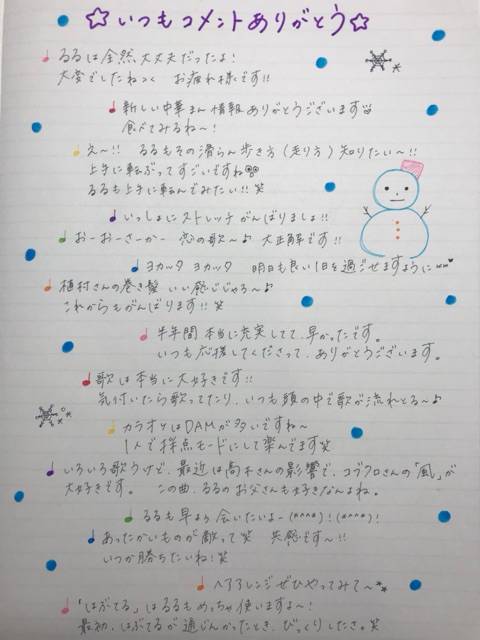 ☆いつもコメントありがとう☆
♪るるは全然、大丈夫だったよ!
大変でしたねっ お疲れ様です!!
♪新しい中華まん情報ありがとうございます
食べてみるね〜!
♪え〜!! るるもその滑らん歩き方(走り方)知りたい〜!!
上手に転ぶってすごいですね
るるも上手に転んでみたい!!笑
♪いっしょにストレッチがんばりましょ!!
♪おーおーさーかー 恋の歌〜♪ 大正解です!!
♪ヨカッタ ヨカッタ 明日も良い1日を過ごせますように
♪植村さんの巻き髪 いい感じじゃろ〜♪
これからもがんばります!!笑
♪半年間 本当に充実してて、早かったです。
いつも応援してくださって、ありがとうございます。
♪歌は本当に大好きです!!
気付いたら歌ってたり、いつも頭の中で歌が流れとる〜♪
♪カラオケはDAMが多いですね〜
1人で採点モードにして楽んでます笑
♪いろいろ歌うけど、最近は高木さんの影響で、コブクロさんの「風」が
大好きです。 この曲、るるのお父さんも好きなんよね。
♪るるも早よう会いたいよー(*^^*)!(*^^*)!
♪あったかいものが敵って笑 共感です〜!!
いつか勝ちたいね!笑
♪ヘアアレンジぜひやってみて〜
♪「はぶてる」はるるもめっちゃ使いますよ〜!
最初、はぶてるが通じんかったとき、びっくりしたさ。笑